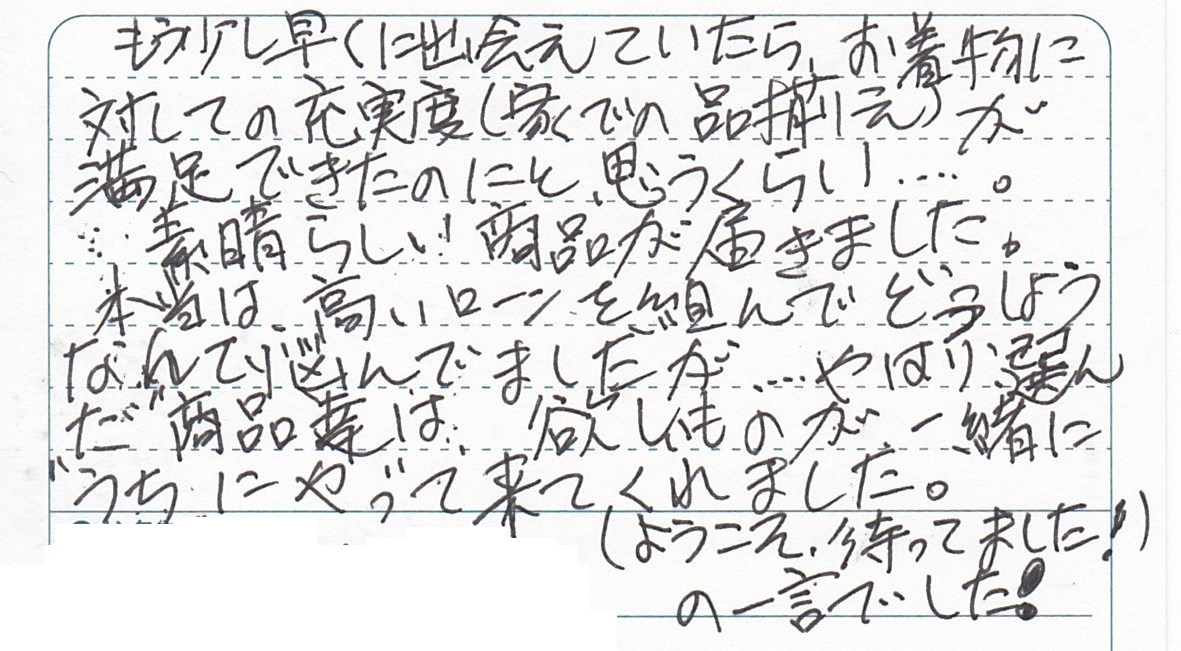 もう少し早くに出会えていたら、お着物に
対しての充実度(家での品揃え)が
満足できたのにと、思うくらい....。
素晴らしい商品が届きました。
本当は、高いローンを組んでどうしよう
なんて、悩んでましたが...やはり、選ん
だ商品達は、欲しいものが、一緒に
うちにやって来てくれました。
(ようこそ、待ってました!)
の一言でした!